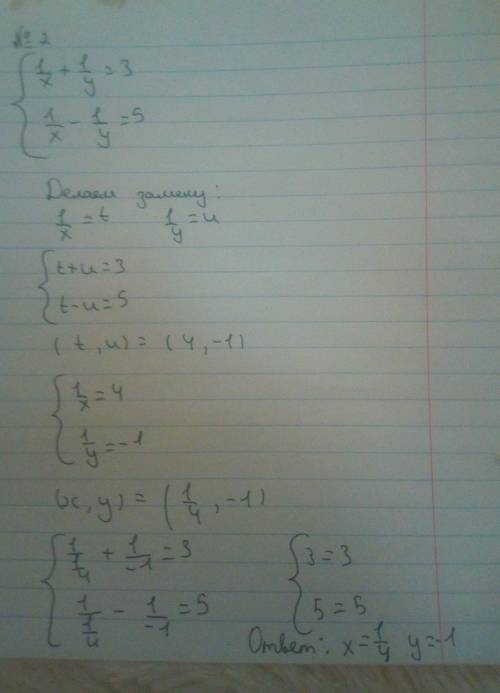 № 2
1/x + 1/y = 3
1/x - 1/y = 5
Делаем замену:
1/x = t 1/y = u
t+u=3
t-u=5
(t, u) = (4, -1)
1/x = 4
1/y = -1
(x, y) = (1/4, -1)
1/(1/4) + 1/-1 = 3 3=3
1/(1/4) - 1/-1 = 5 5=5
Ответ: x=1/4 y=-1